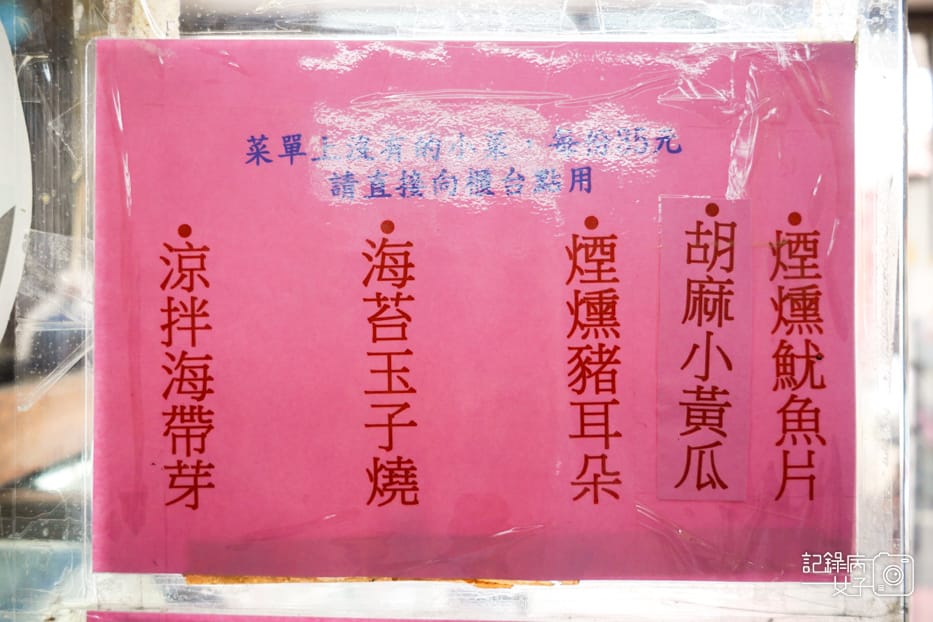 菜單上沒有的小菜，每份35元
請直接向櫃台點用
•煙燻魷魚片
•胡麻小黃瓜
•煙燻豬耳朵
•海苔玉子燒
•涼拌海帶芽
記錄病
女子